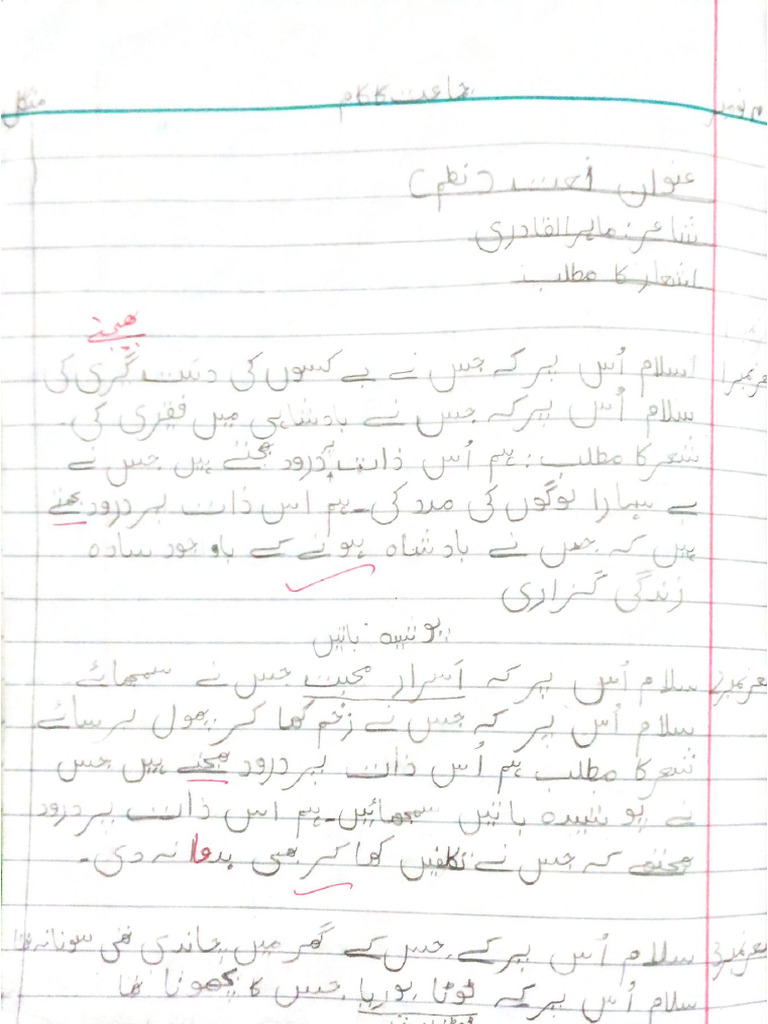 جماعت کا کام
منگل
عنوان نعت (نظم)
شاعر: ماہر القادری
اشعار کا مطلب
بھیجتے
شعر نمبر 1 سلام اُس پر کہ جس نے بے کسوں کی دست گیری کی
سلام اُس پر کہ جس نے بادشاہی میں فقیری کی۔
شعر کا مطلب: ہم اُس ذات پر درود بھجتے ہیں جس نے
بے سہارا لوگوں کی مدد کی۔ ہم اس ذات پر درود بھجتے
ہیں کہ جس نے بادشاہ ہونے کے باوجود سادہ
زندگی گزاری
پوشیدہ باتیں
شعر نمبر 2 سلام اُس پر کہ اَسرار محبت جس نے سمجھائے
سلام اُس پر کہ جس نے زخم کھا کر پھول برسائے
شعر کا مطلب ہم اُس ذات پر درود بھجتے ہیں جس
نے پوشیدہ باتیں سمجھائیں۔ ہم اس ذات پر درود
بھجتے کہ جس نے تکلفیں کھا کر بھی بددعا نہ دی۔
شعر نمبر 3 سلام اُس پر کہ جس کے گھر میں چاندی تھی سونا نہ تھا
سلام اُس پر کہ ٹوٹا بوریا جس کا بچھونا تھا